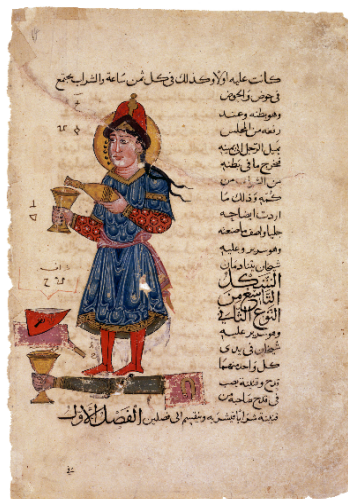 كانت عليه اولا وكذلك في كل ثمن ساعة والشراب يجتمع
في حوض والحوض
وهو بطنه وعند
رفعه من المجلس
يميل الرجل
فخرج ما في بطنه
من الشراب من
كمه وذلك ما
اردت ايضاحه
جليا واصف ما صنعته
وهو سرير وعليه
شيخان يتنادمان
الشكل
التاسع من
النوع الثاني
وهو سرير عليه
شيخان في يدي
كل واحد منهما
قدح وقنينة يصب
في قدح صاحبه من
قنينته شرابا فيشربه وينقسم الى فصلين الفصل الاول